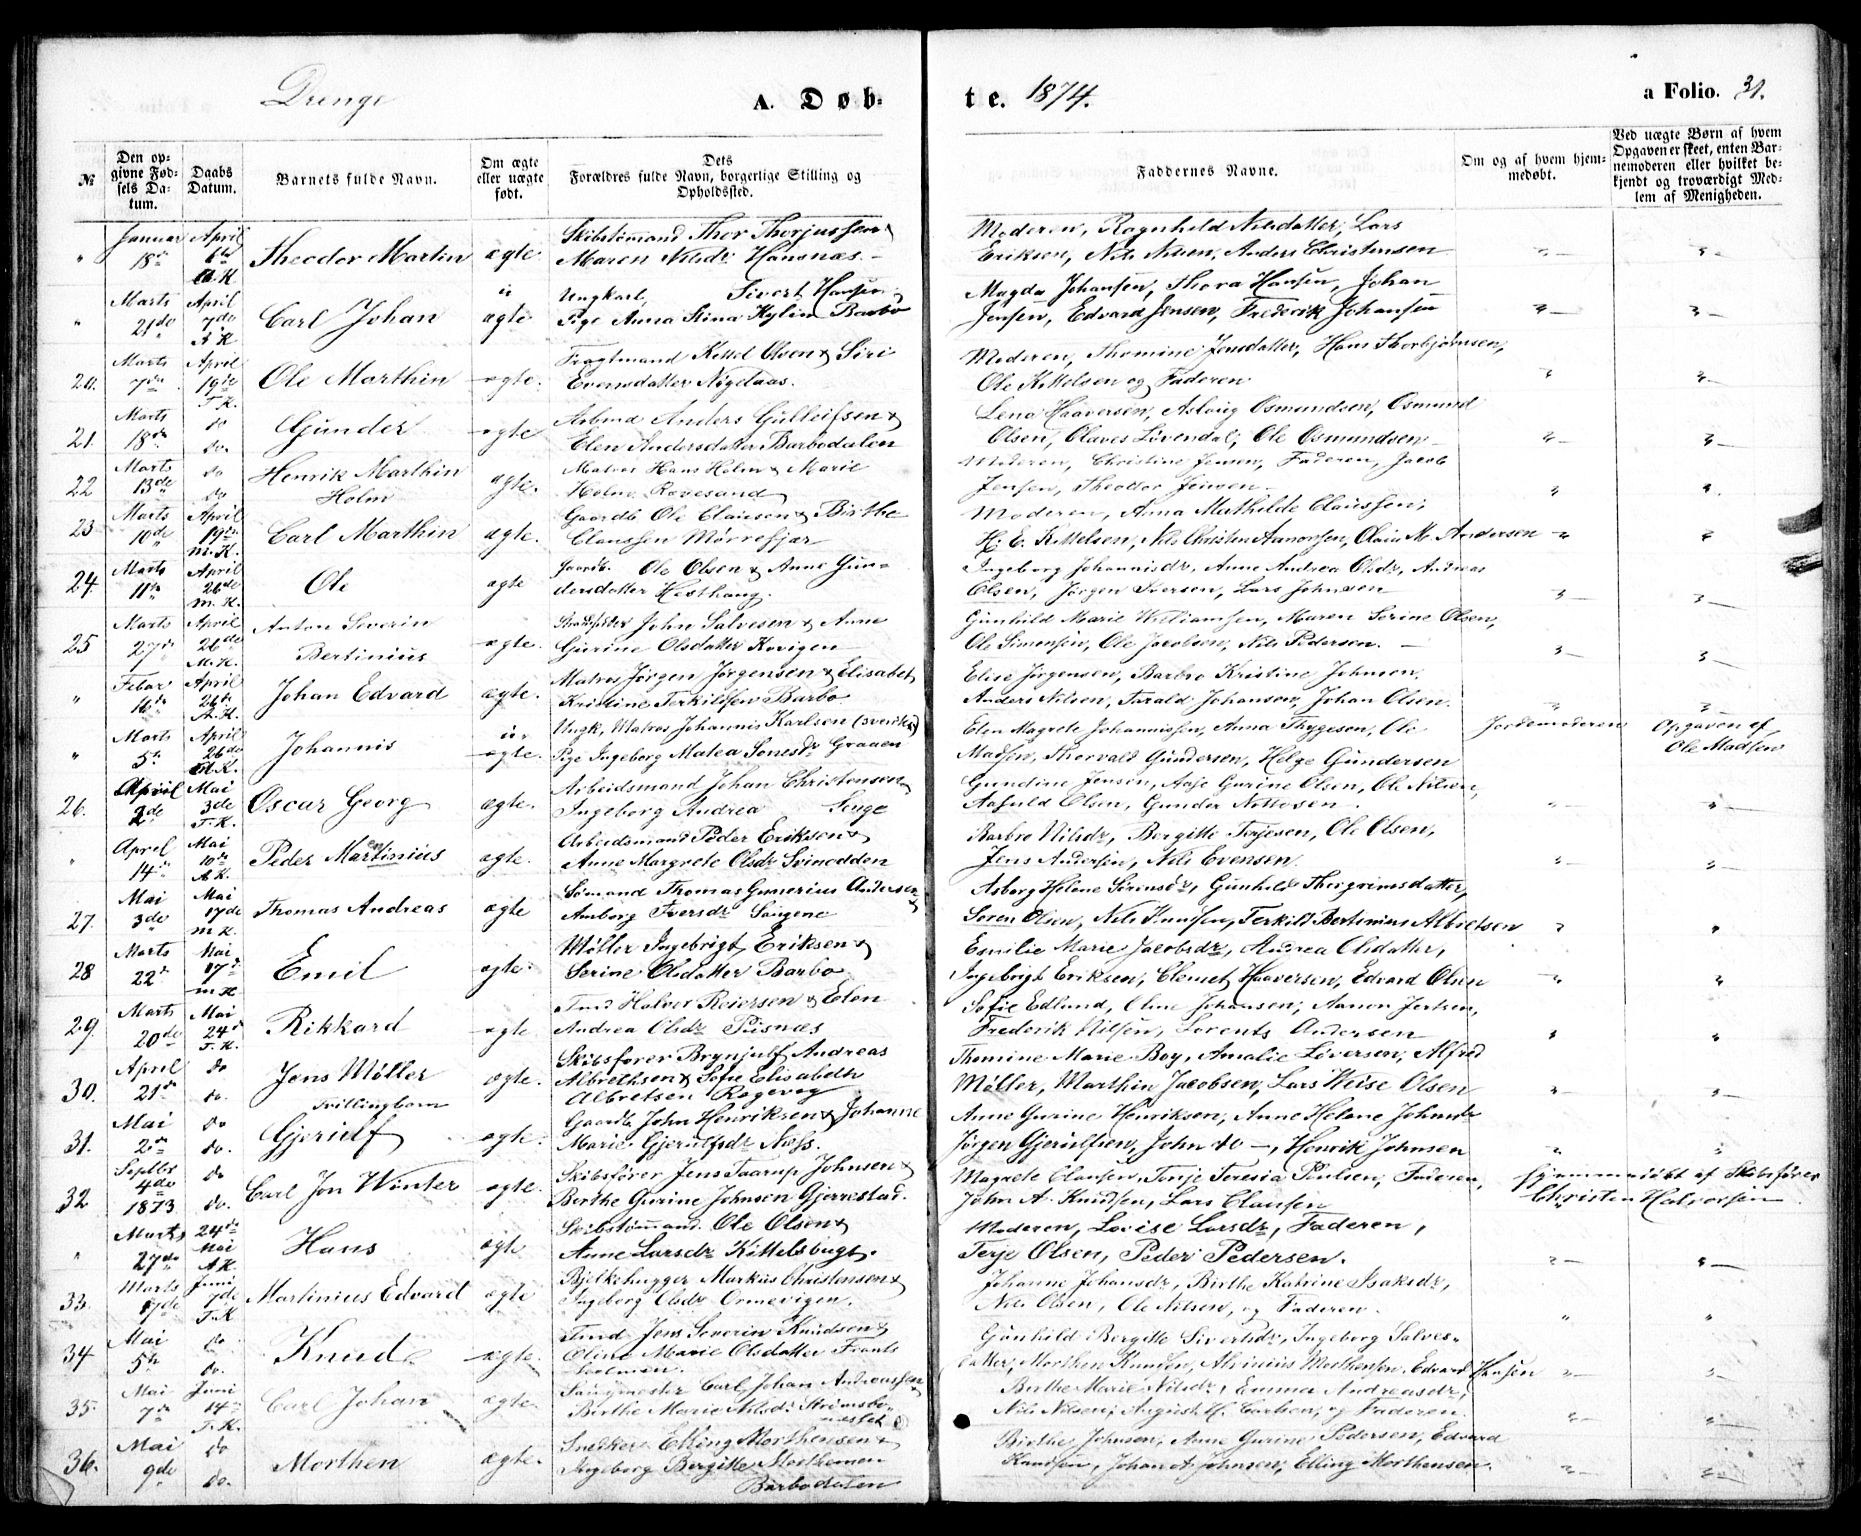 Drenge
A. Døb-
te. 1874.
a Folio. 31.
№
Den op-
givne Fød-
sels Da-
tum.
Daabs
Datum.
Barnets fulde Navn.
Om ægte
eller uægte
født.
Dets
Forældres fulde Navn, borgerlige Stilling og
Opholdssted.
Faddernes Navne.
Om og af hvem hjem-
medøbt.
Ved uægte Børn af hvem
Opgaven er skeet, enten Bar-
nemoderen eller hvilket be-
kjendt og troværdigt Med-
lem af Menigheden.
" Januar 18de April 6te A.K. Theodor Martin ægte
Skibstømmand Thor Thorjussen &
Maren Nilsdr Hansnæs.
Moderen, Ragnhild Nilsdatter, Lars
Eriksen, Nils Nilsen, Anders Christensen
" Marts 21de April 7de A.K. Carl Johan u ægte
Ungkarl, Sivert Hansen &
Pige Anna Stina Kylin Barbo
Magda Johansen, Thora Hansen, Johan
Jensen, Edvard Jensen, Frederik Johansen
20. Marts 7de April 19de T.K. Ole Marthin ægte.
Fragtmand Kittel Olsen & Siri
Evensdatter
Moderen, Thomine Jensdatter, Hans Thorbjørnsen,
Ole Kittelsen og Faderen
21. Marts 18de do do. Gunder ægte
Arbmd Anders Gulleifsen &
Elen Andersdatter Barbodalen
Lena Haaversen, Aslaug Osmundsen, Osmund
Olsen, Olaves Løvendal, Ole Osmundsen
22 Marts 13de do do Henrik Marthin
Holm ægte.
Matros Hans Holm & Marie
Holm Rævesand
Moderen, Christine Jensen, Faderen, Jacob
Jensen, Theodor Jensen
23. Marts 10de April 19de M.K. Carl Marthin ægte.
Gaardb Ole Clausen & Birthe
Claussen Mørrefjær
Moderen, Anna Mathilde Claussen,
H. E. Kittelsen, Nils Christen Aanonsen, Claus M. Andersen
24. Marts 11te April 26de M.K. Ole ægte
Gaardb. Ole Olsen & Anne Gun-
dersdatter Hesthaug.
Ingeborg Johannisdr, Anne Andrea Olsdr, Andreas
Olsen, Jørgen Iversen, Lars Johnsen
25 Marts 27de April 26de M.K. Anton Severin
Bertinius ægte.
John Salvesen & Anne
Gurine Olsdatter Kovigen
Gunhild Marie Williamsen, Maren Serine Olsen,
Ole Simonsen, Ole Jacobsen, Nils Pedersen.
" Febr 16de April 26de A.K. Johan Edvard ægte.
Matros Jørgen Jørgensen & Elisabet
Kristine Terkildsen Barbo
Elise Jørgensen, Barbro Kristine Johnsen,
Anders Nilsen, Tarald Johansen, Johan Olsen.
" Marts 5te April 26de A.K. Johannis u- ægte.
Ungk. Matros Johannis Karlsen (svensk) &
Pige Ingeborg Malea Tonesdr Graaen
Elen Magrete Johannissen, Anna Thygesen, Ole
Madsen, Thorvald Gundersen, Helge Gundersen
Jordemoderen
Opgaven af
Ole Madsen
26. April 2de Mai 3de T.K. Oscar Georg ægte.
Arbeidsmand Johan Christensen &
Ingeborg Andrea Songe
Gundine Jensen, Aase Gurine Olsen, Ole Nilsen,
Aasuld Olsen, Gunder Nottosen.
" April 14de Mai 10de A.K. Peder Martinius ægte.
Arbeidsmand Peder Eriksen &
Anne Margrete Olsdr Svinodden
Barbro Nilsdr, Bergitte Terjesen, Ole Olsen,
Jens Andersen, Nils Evensen
27. Mai 3de Mai 17de M.K. Thomas Andreas ægte
Sømand Thomas Gunerius Andersen &
Amborg Iversdr Songene
Asborg Helene Sørensdr, Gunhild Thorgrimsdatter,
Søren Olsen, Nils Knudsen, Terkild Bertinius Albretsen
28 Marts 22de Mai 17de M.K. Emil ægte.
Møller Ingebrigt Eriksen &
Serine Olsdatter Barbo
Emilie Marie Jacobsdr, Andrea Olsdatter,
Ingebrigt Eriksen, Clemet Haaversen, Edvard Olsen
29. Marts 20de Mai 24de T.K. Rikkard ægte.
Tmd Halvor Reiersen & Elen
Andrea Olsdr Pusnæs
Sofie Edlund, Oline Johansen, Aanon Jensen,
Frederik Nilsen, Lorents Andersen
30. April 21de do do. Jens Møller
Tvillingbarn ægte.
Skibsfører Brynjulf Andreas
Albrethsen & Sofie Elisabeth
Albretsen Rægevig
Thomine Marie Boy, Amalie Siversen, Alfred
Møller, Marthin Jacobsen, Lars Weise Olsen
31. Mai 2de do do. Gjerulf ægte.
Gaardb. John Henriksen & Johanne
Marie Gjerulfsdr Næss.
Anne Gurine Henriksen, Anne Helene Johnsdr
Jørgen Gjerulfsen, John do —, Henrik Johnsen
32 Septbr 4de 1873 do do. Carl Jon Winter ægte.
Skibsfører Jens Taarup Johnsen &
Berthe Gurine Johnsen Gjerrestad.
Magrete Clausen, Tonje Teresia Poulsen, Faderen,
John A. Knudsen, Lars Clausen
Hjemmedøbt af Skibsfører
Christen Halvorsen
" Marts 27de 24de Mai A.K. Hans ægte
Skibstømmand. Ole Olsen &
Anne Larsdr Kittelsbugt.
Moderen, Lovise Larsdr, Faderen,
Terje Olsen, Peder Pedersen.
33. Marts 17de Juni 7de T.K. Martinius Edvard ægte
Bjelkehugger Markus Christensen &
Ingeborg Olsdr Ormevigen.
Johanne Johansdr, Birthe Katrine Isaksdr,
Nils Olsen, Ole Nilsen, og Faderen.
34 Mai 5te do do. Knud ægte.
Tmd Jens Severin Knudsen &
Oline Marie Olsdatter Frants
Gunhild Bergitte Sivertsdr, Ingeborg Salves-
datter, Morthen Knudsen, Alvinius Morthensen, Edvard Hansen
35. Mai 7de Juni 14de T.K. Carl Johan ægte.
Carl Johan Andreassen &
Birthe Marie Nilsdr Strømsbo-
Birthe Marie Nilsdr, Emma Andreasdr,
Nils Nilsen, August H. Carlsen, og Faderen.
36. Mai 9de do do. Morthen ægte.
Snedker Elling Morthensen &
Ingeborg Bergitte Morthensen
Barbodalen
Birthe Johnsen, Anne Gurine Pedersen, Edvard
Knudsen, Johan A. Johnsen, Elling Morthensen.